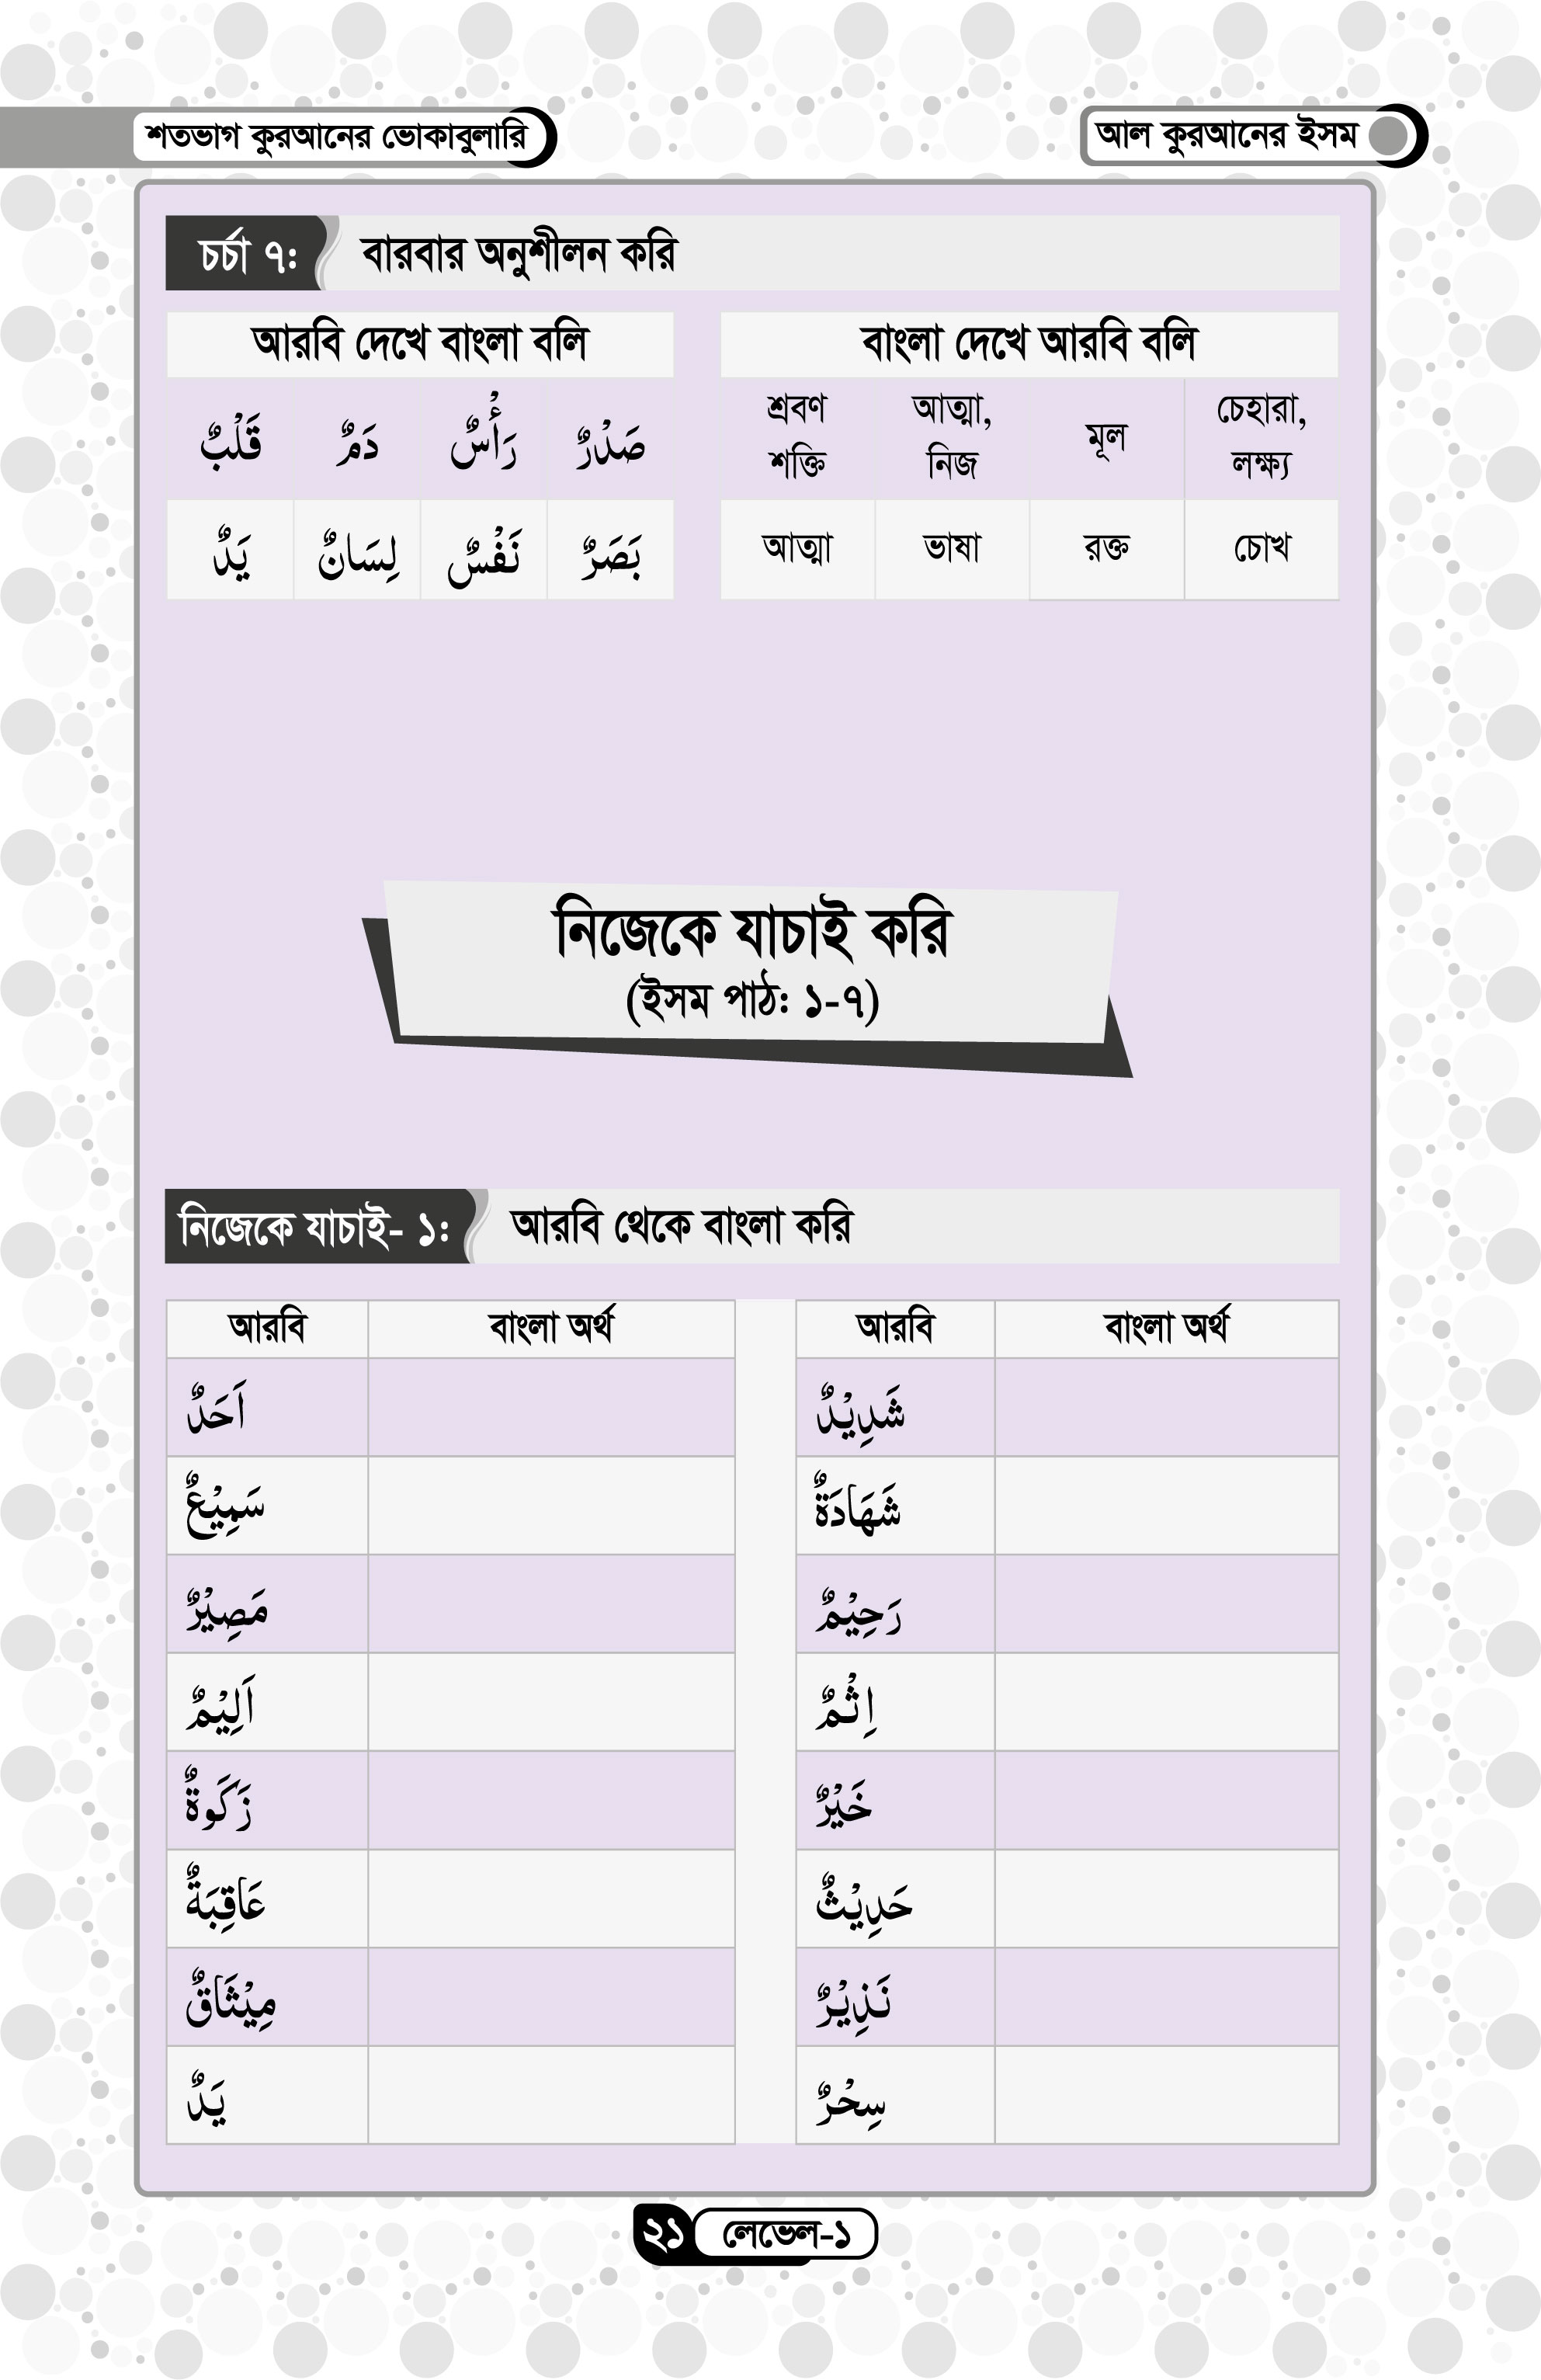 শতভাগ কুরআনের ভোকাবুলারি
আল কুরআনের ইসম
চর্চা ৭: বারবার অনুশীলন করি
আরবি দেখে বাংলা বলি
قَلْبٌ دَمٌ رَأْسٌ صَدْرٌ
يَدٌ لِسَانٌ نَفْسٌ بَصَرٌ
বাংলা দেখে আরবি বলি
শ্রবণ শক্তি আত্মা, নিজ মূল চেহারা, লক্ষ্য
আত্মা ভাষা রক্ত চোখ
নিজেকে যাচাই করি
(ইসম পাঠ: ১-৭)
নিজেকে যাচাই- ১: আরবি থেকে বাংলা করি
আরবি বাংলা অর্থ আরবি বাংলা অর্থ
اَحَدٌ شَدِيْدٌ
سَمِيْعٌ شَهَادَةٌ
مَصِيْرٌ رَحِيْمٌ
اَلِيْمٌ اِثْمٌ
زَكَوةٌ خَيْرٌ
عَاقِبَةٌ حَدِيْثٌ
مِيْثَاقٌ نَذِيْرٌ
يَدٌ سِحْرٌ
২১ লেভেল-১